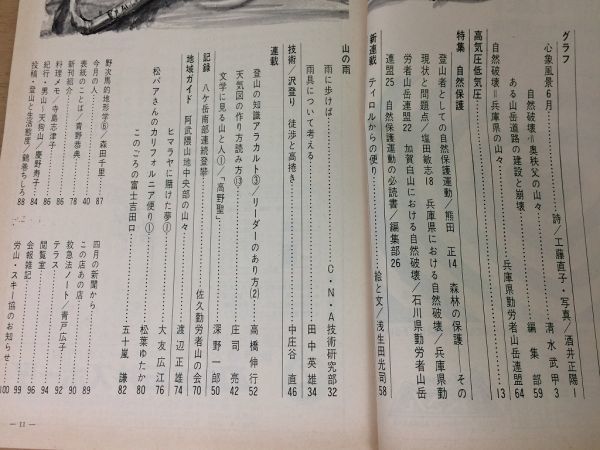 グラフ
心象風景6月 詩 工藤直子・写真/酒井正陽 1
自然破壊=奥秩父の山々 清水武甲 3
ある山岳道路の建設と崩壊 編集部 59
自然破壊=兵庫県の山々 兵庫県勤労者山岳連盟 64
高気圧低気圧 13
特集 自然保護
登山者としての自然保護運動/熊田 正 14 森林の保護 その
現状と問題点/塩田敏志 18 兵庫県における自然破壊/兵庫県勤
労者山岳連盟 22 加賀白山における自然破壊/石川県勤労者山岳
連盟 25 自然保護運動の必読書/編集部 26
新連載 チロルからの便り 絵と文/浅生田光司 58
山の雨
雨に歩けば C・N・A技術研究部 32
雨具について考える 田中英雄 34
技術・沢登り 徒渉と高捲き 中庄谷 直 46
連載
登山の知識アラカルト③/リーダーのあり方(2) 高橋伸行 52
天気図の作り方読み方⑬ 庄司 亮 42
文学に見る山と人①/「高野聖」 深野一郎 50
記録 八ケ岳南部連続登攀 佐久勤労者山の会 70
地域ガイド 阿武隈山地中央部の山々 渡辺正雄 74
ヒマラヤに賭けた夢① 大友広江 76
松バアさんのカリフォルニア便り① 松葉ゆたか 80
このごろの富士吉田口 五十嵐 謙 82
野次馬的地形学⑥/森田千里 87
今月の人 78
表紙のことば/青野恭典 40
新刊紹介 78
料理メモ・寺島志津子 85
紀行・男山―天狗山/慶野寿子 86
投稿・登山と生活態度/鶴巻ちしろ 84
88
四月の新聞から 89
この店あの店 90
救急法ノート/青戸広子 92
テラス 94
閲覧室 96
会報雑記 99
労山・スキー協のお知らせ 100
— 11 —